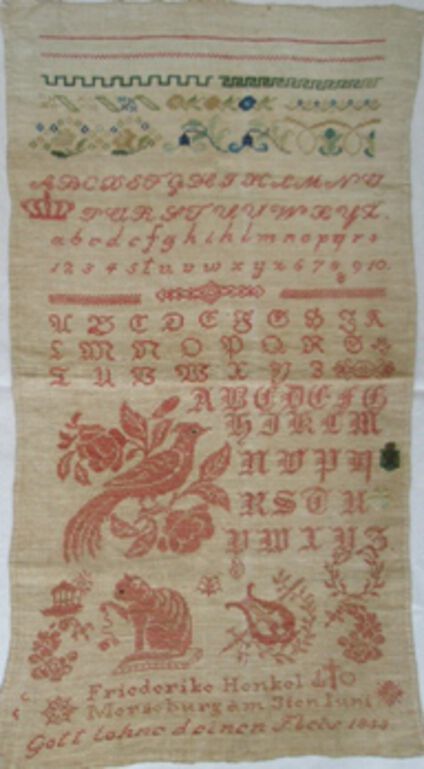 A B C D E F G H I K L M N O
P Q R S T U V W X Y Z.
a b c d e f g h i k l m n o p q r s
1 2 3 4 5 t u v w x y z 6 7 8 9 10.
A B C D E F G H J K
L M N O P Q R S
T U V W X Y Z
A B C D E F G
H I K L M
N O P Q
R S T U
V W X Y Z
Friederike Henkel
Merseburg am 3ten Juni
Gott lohne deinen Fleis 1844